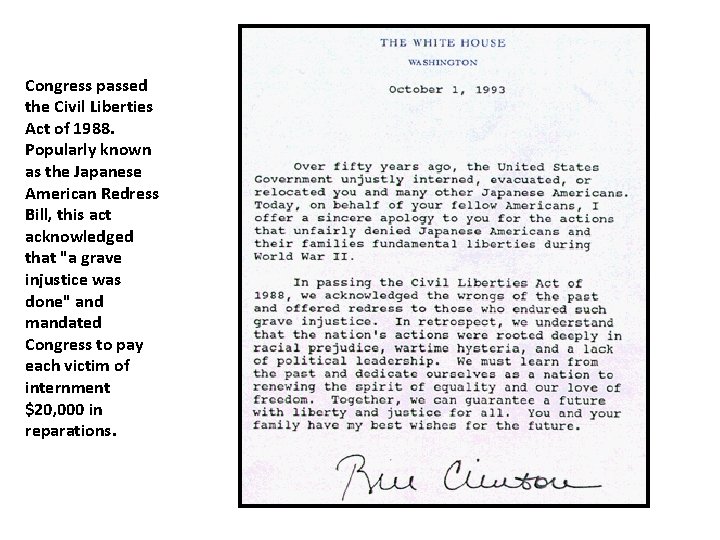 Congress passed
the Civil Liberties
Act of 1988.
Popularly known
as the Japanese
American Redress
Bill, this act
acknowledged
that "a grave
injustice was
done" and
mandated
Congress to pay
each victim of
internment
$20,000 in
reparations.
THE WHITE HOUSE
WASHINGTON
October 1, 1993
Over fifty years ago, the United States
Government unjustly interned, evacuated, or
relocated you and many other Japanese Americans.
Today, on behalf of your fellow Americans, I
offer a sincere apology to you for the actions
that unfairly denied Japanese Americans and
their families fundamental liberties during
World War II.
In passing the Civil Liberties Act of
1988, we acknowledged the wrongs of the past
and offered redress to those who endured such
grave injustice. In retrospect, we understand
that the nation's actions were rooted deeply in
racial prejudice, wartime hysteria, and a lack
of political leadership. We must learn from
the past and dedicate ourselves as a nation to
renewing the spirit of equality and our love of
freedom. Together, we can guarantee a future
with liberty and justice for all. You and your
family have my best wishes for the future.
Bill Clinton